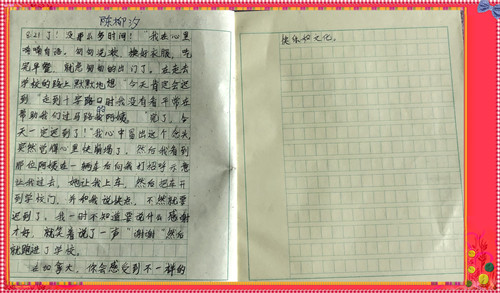 陈柳汐
8:21了！没那么多时间！"我在心里
嘀嘀自语。匆匆洗漱，换好衣服，吃
完早餐，就急匆匆的出门了。在走去
学校的路上默默地想"今天肯定会迟
到"走到十字路口时我没有看平常在
帮助我们过马路的阿姨。"完了，今
天一定迟到了！"我心中冒出这个念头，
突然觉得心里快崩塌了，然后我看到
那位阿姨在一辆车后向我打招呼示意
让我过去，她让我上车，然后把车开
到学校门，并和我说快点，不然就要
迟到了。我一时不知道要说什么感谢
才好，就笑着说了一声"谢谢"然后
就跑进了学校。
在加拿大，你会感受到不一样的
快乐和文化。